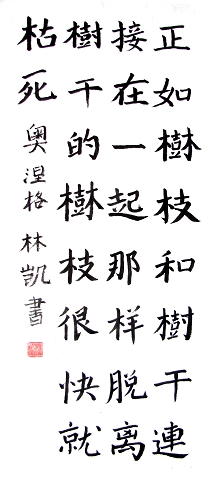 正如樹枝和樹干連
接在一起那样脱离
樹干的樹枝很快就
枯死 奥涅格 林凯書